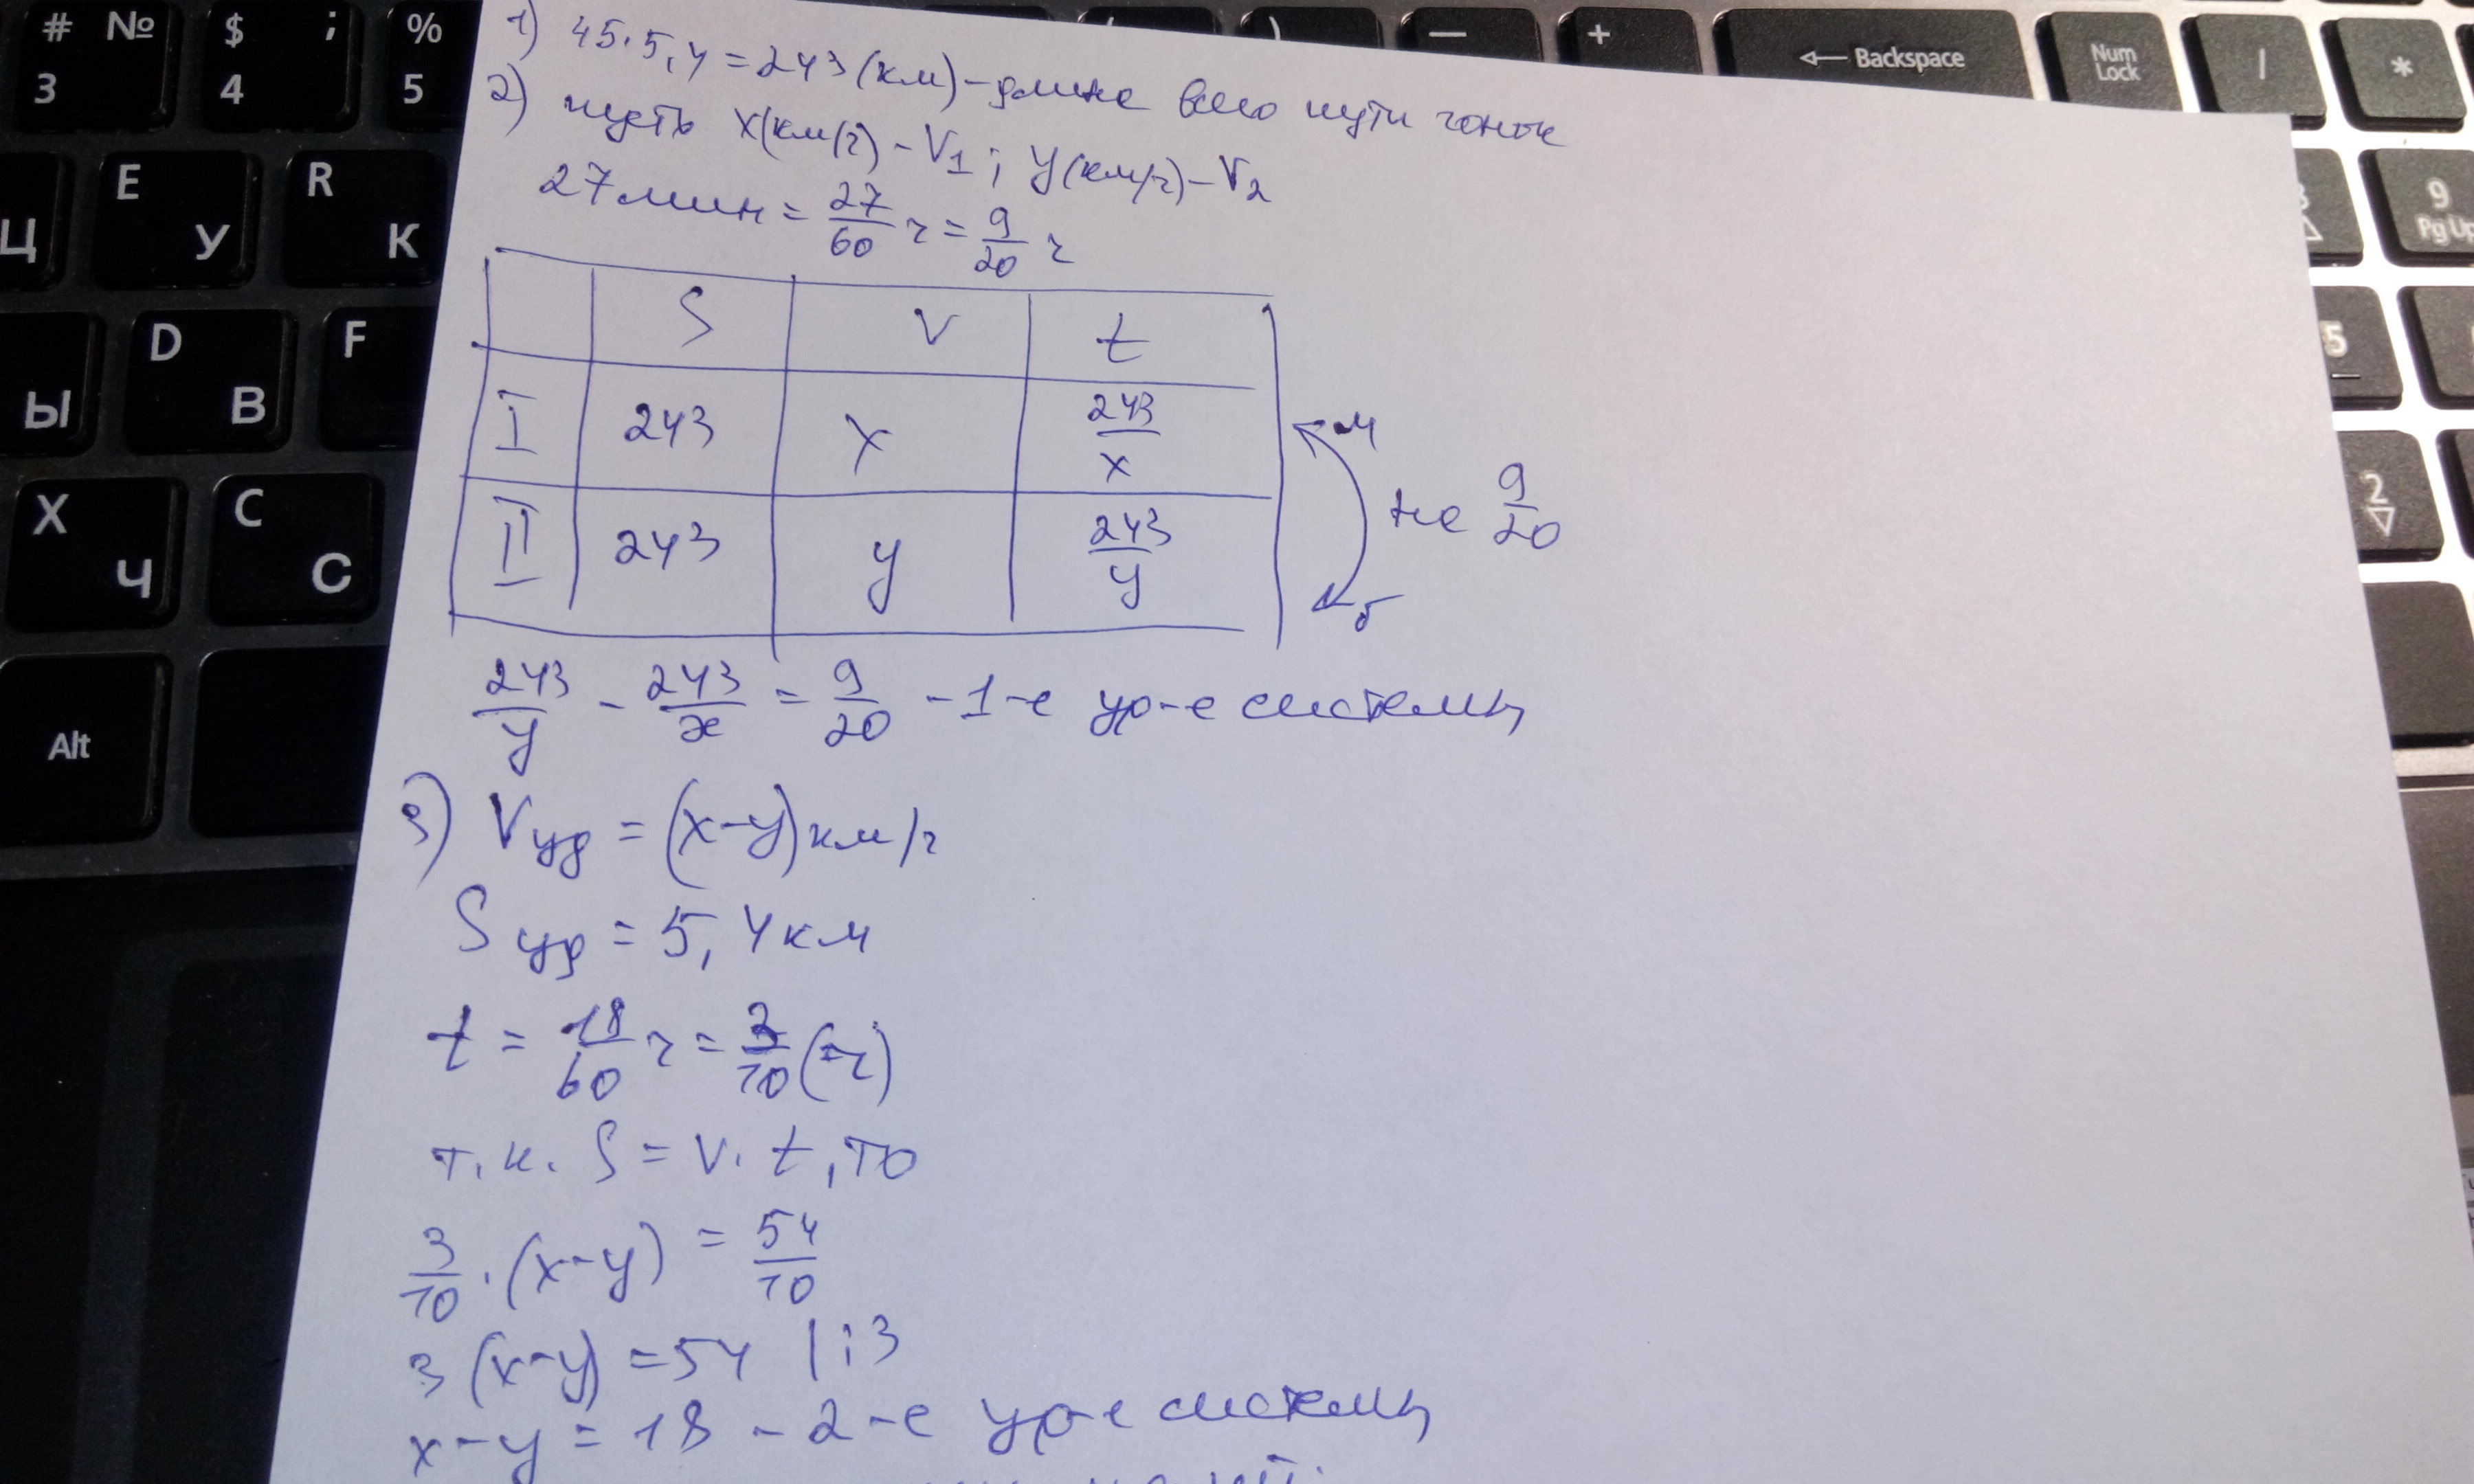 # № $ ; %
3 4 5
( ) — + ← Backspace Num Lock / *
Ц E У R К
9 Pg Up
Ы D В F
5
X Ч C С
2
Alt
1) 45·5,4=243(км)-длина всего пути гонки
2) пусть x(км/ч)-V1; y(км/ч)-V2
27мин=27/60 ч=9/20 ч
S V t
I 243 x 243/x
II 243 y 243/y
м
на 9/20
б
243/y - 243/x = 9/20 - 1-е ур-е системы
3) Vуд = (x-y)км/ч
Sур = 5,4км
t = 18/60 ч = 3/10 (ч)
т.к. S = V·t, то
3/10·(x-y) = 54/10
3(x-y) = 54 |:3
x-y = 18 - 2-е ур-е системы